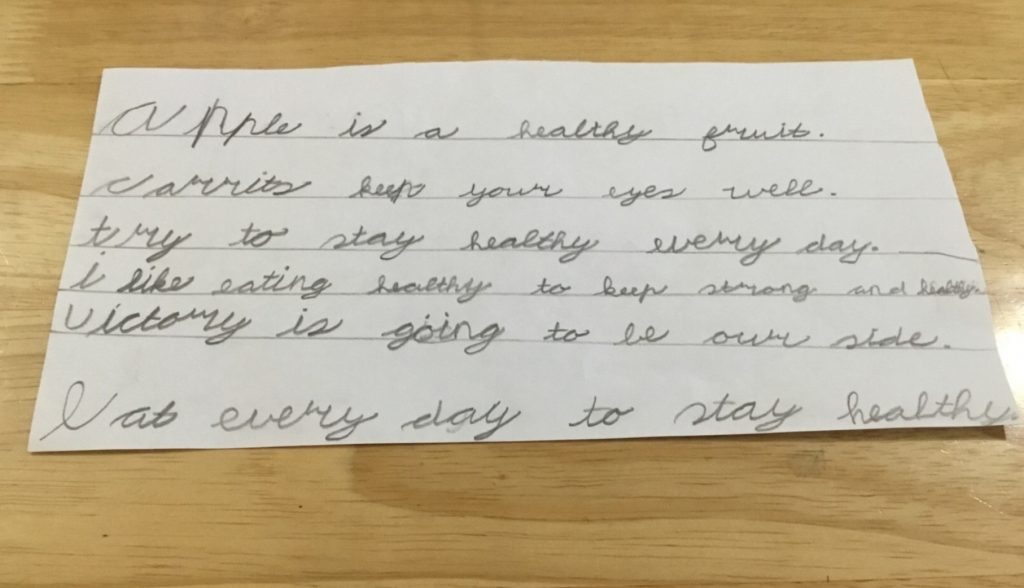 Apple is a healthy fruit.
carrits keep your eyes well.
try to stay healthy every day.
i like eating healthy to keep strong and healthy.
Victory is going to be our side.
Eat every day to stay healthy.